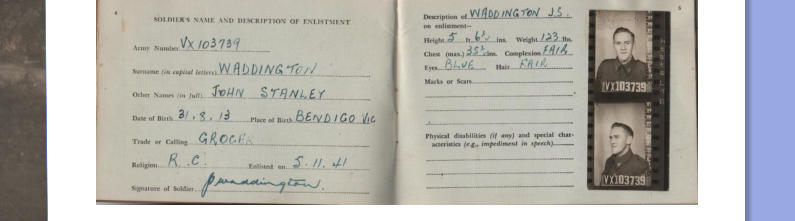 4
SOLDIER'S NAME AND DESCRIPTION OF ENLISTMENT
Army Number VX103739
Surname (in capital letters) WADDINGTON
Other Names (in full) JOHN STANLEY
Date of Birth 31.8.13 Place of Birth BENDIGO VIC
Trade or Calling GROCER
Religion R.C. Enlisted on 5.11.41
Signature of Soldier JSWaddington.
5
Description of WADDINGTON J.S.
on enlistment—
Height 5 ft. 6½ ins. Weight 123 lbs.
Chest (max.) 35½ ins. Complexion FAIR
Eyes BLUE Hair FAIR
Marks or Scars
Physical disabilities (if any) and special char-
acteristics (e.g., impediment in speech)
VX103739
VX103739